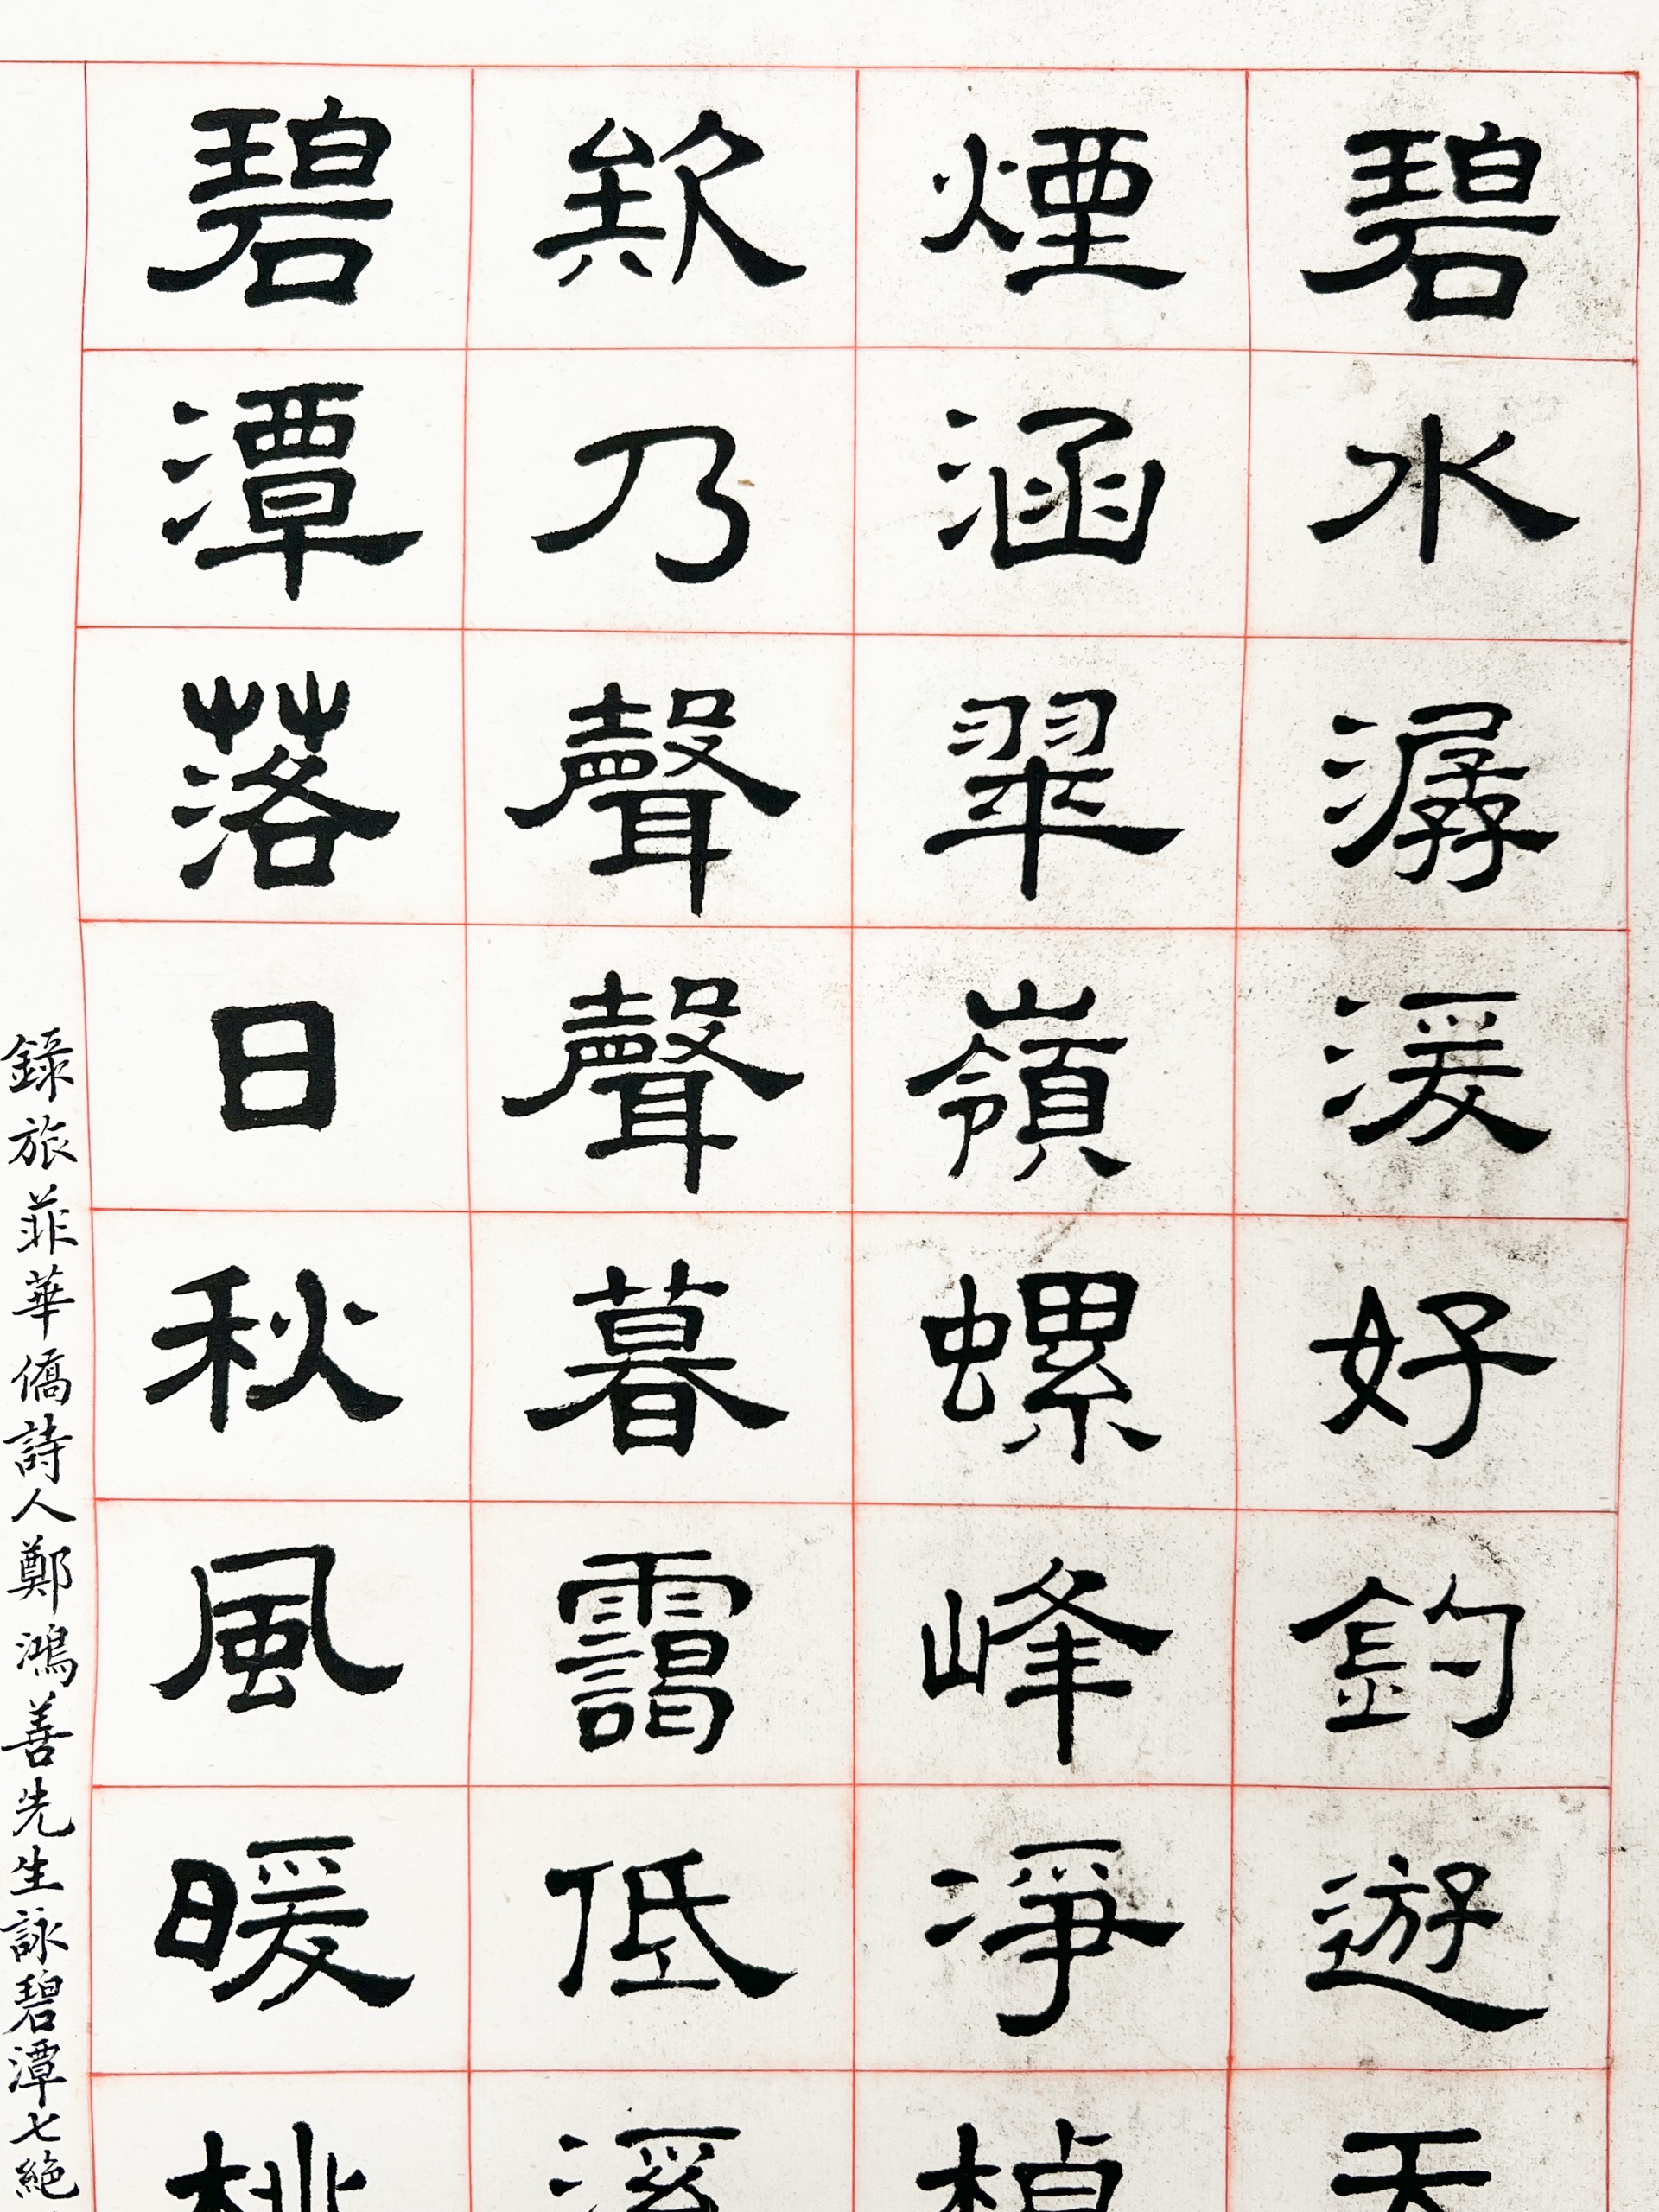 碧水潺湲好釣遊天
煙涵翠嶺螺峰淨
欸乃聲聲暮靄低溪
碧潭落日秋風暖桃
錄旅菲華僑詩人鄭鴻善先生詠碧潭七絕